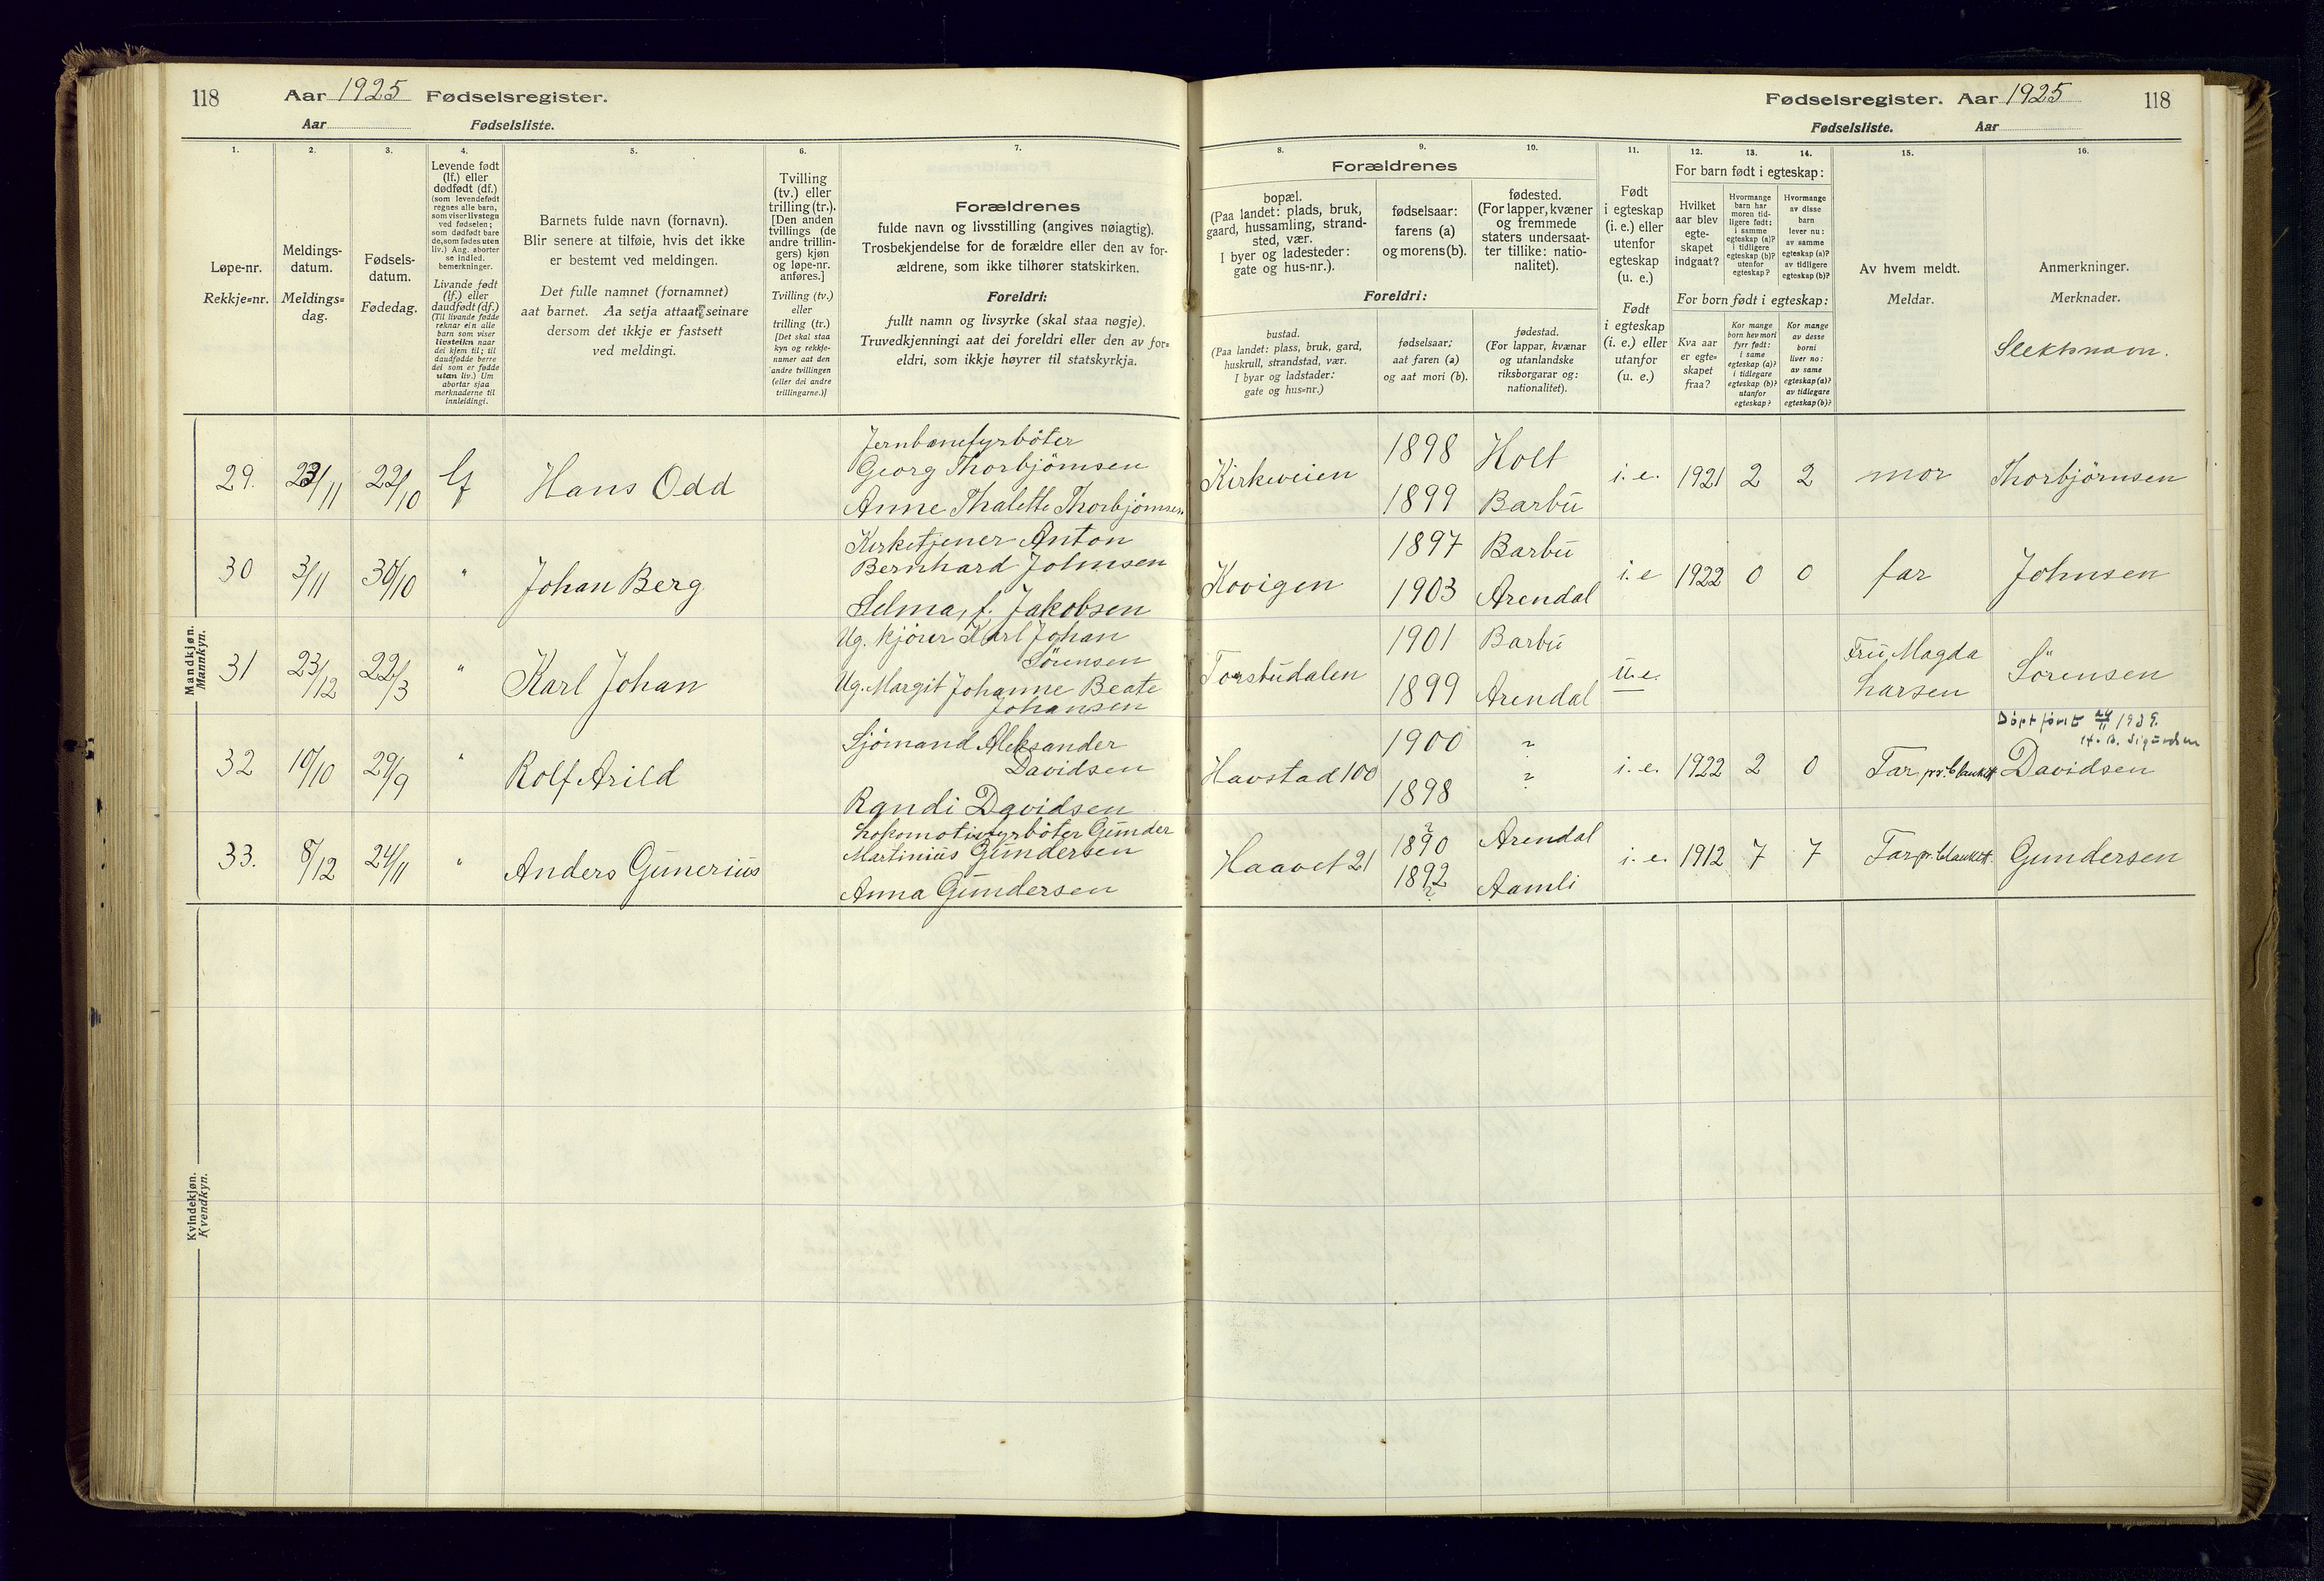 118 Aar 1925 Fødselsregister.
Aar Fødselsliste.
Fødselsregister. Aar 1925 118
Fødselsliste. Aar
1.
2.
3.
4.
5.
6.
7.
Løpe-nr.
Rekkje=nr.
Meldings-
datum.
Meldings=
dag.
Fødsels-
datum.
Fødedag.
Levende født
(lf.) eller
dødfødt (df.)
(som levendefødt
regnes alle barn,
som viser livstegn
ved fødselen;
som dødfødt bare
de, som fødes uten
liv.) Ang. aborter
se indled.
bemerkninger.
Livande født
(lf.) eller
daudfødt (df.)
(Til livande fødde
reknar ein alle
barn som viser
livsteikn naar
dei kjem til; til
daudfødde berre
dei som er fødde
utan liv.) Um
abortar sjaa
merknaderne til
innleidingi.
Barnets fulde navn (fornavn).
Blir senere at tilføie, hvis det ikke
er bestemt ved meldingen.
Det fulle namnet (fornamnet)
aat barnet. Aa setja attaat seinare
dersom det ikkje er fastsett
ved meldingi.
Tvilling
(tv.) eller
trilling (tr.).
[Den anden
tvillings (de
andre trillin-
gers) kjøn
og løpe-nr.
anføres.]
Tvilling (tv.)
eller
trilling (tr.)
[Det skal staa
kyn og rekkje-
numer aat den
andre tvillingen
(eller dei andre
trillingarne.)]
Forældrenes
fulde navn og livsstilling (angives nøiagtig).
Trosbekjendelse for de forældre eller den av for-
ældrene, som ikke tilhører statskirken.
Foreldri:
fullt namn og livsyrke (skal staa nøgje).
Truvedkjenningi aat dei foreldri eller den av for=
eldri, som ikkje høyrer til statskyrkja.
8.
9.
10.
11.
12.
13.
14.
15.
16.
Forældrenes
bopæl.
(Paa landet: plads, bruk,
gaard, hussamling, strand-
sted, vær.
I byer og ladesteder:
gate og hus-nr.).
fødselsaar:
farens (a)
og morens (b).
fødested.
(For lapper, kvæner
og fremmede
staters undersaat-
ter tillike: natio-
nalitet).
Foreldri:
bustad.
(Paa landet: plass, bruk, gard,
huskrull, strandstad, vær.
I byar og ladstader:
gate og hus=nr.)
fødselsaar:
aat faren (a)
og aat mori (b).
fødestad.
(For lappar, kvænar
og utanlandske
riksborgarar og:
nationalitet).
Født
i egteskap
(i. e.) eller
utenfor
egteskap
(u. e.)
Født
i egteskap
(i. e.) eller
utanfor
(u. e.)
For barn født i egteskap:
Hvilket
aar blev
egte-
skapet
indgaat?
Hvormange
barn har
moren tid-
ligere født:
i samme
egteskap (a)?
i tidligere
egteskap (b)?
utenfor
egteskap?
Hvormange
av disse
barn
lever nu:
av samme
egteskap (a)?
av tidligere
egteskap (b)?
For born født i egteskap:
Kva aar
er egte=
skapet
fraa?
Kor mange
born hev mori
fyrr født:
i same
egteskap (a)?
i tidlegare
egteskap (b)?
utanfor
egteskap?
Kor mange
av desse
borni
liver no:
av same
egteskap (a)?
av tidlegare
egteskap (b)?
Av hvem meldt.
Meldar.
Anmerkninger.
Merknader.
Slektsnavn.
Mandkjøn.
Mannkyn.
29. 23/11 22/10 lf Hans Odd
Jernbanefyrböter
Georg Thorbjörnsen
Anne Thalette Thorbjörnsen
Kirkeveien 1898 Holt
1899 Barbu
i. e. 1921 2 2 mor Thorbjörnsen
30 3/11 30/10 " Johan Berg
Kirketjener Anton
Bernhard Johnsen
Selma, f. Jakobsen
Kovigen 1897 Barbu
1903 Arendal
i. e 1922 0 0 far Johnsen
31 23/12 22/3 " Karl Johan
Ug. kjörer Karl Johan
Sörensen
Ug. Margit Johanne Beate
Johansen
Torsbudalen 1901 Barbu
1899 Arendal
u. e. Fru Magda
Larsen
Sörensen
Döpt först 24/11 1939.
32 10/10 29/9 " Rolf Arild
Sjömand Aleksander
Davidsen
Randi Davidsen
Havstad 100 1900 ?
1898 ?
i. e. 1922 2 0 Far pr. blankett Davidsen
33. 8/12 24/11 " Anders Gunerius
Lokomotivfyrböter Gunder
Martinius Gundersen
Anna Gundersen
Haavet 21 ? 1890 Arendal
1892 ? Aamli
i. e. 1912 7 7 Far pr. blankett. Gundersen
Kvindekjøn.
Kvendkyn.